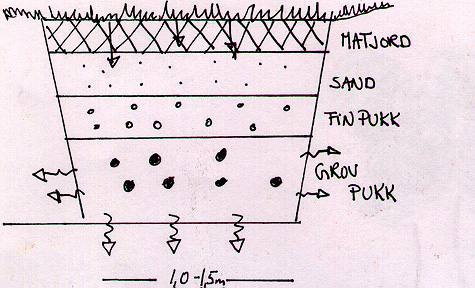 MATJORD
SAND
FIN PUKK
GROV
PUKK
1,0-1,5m